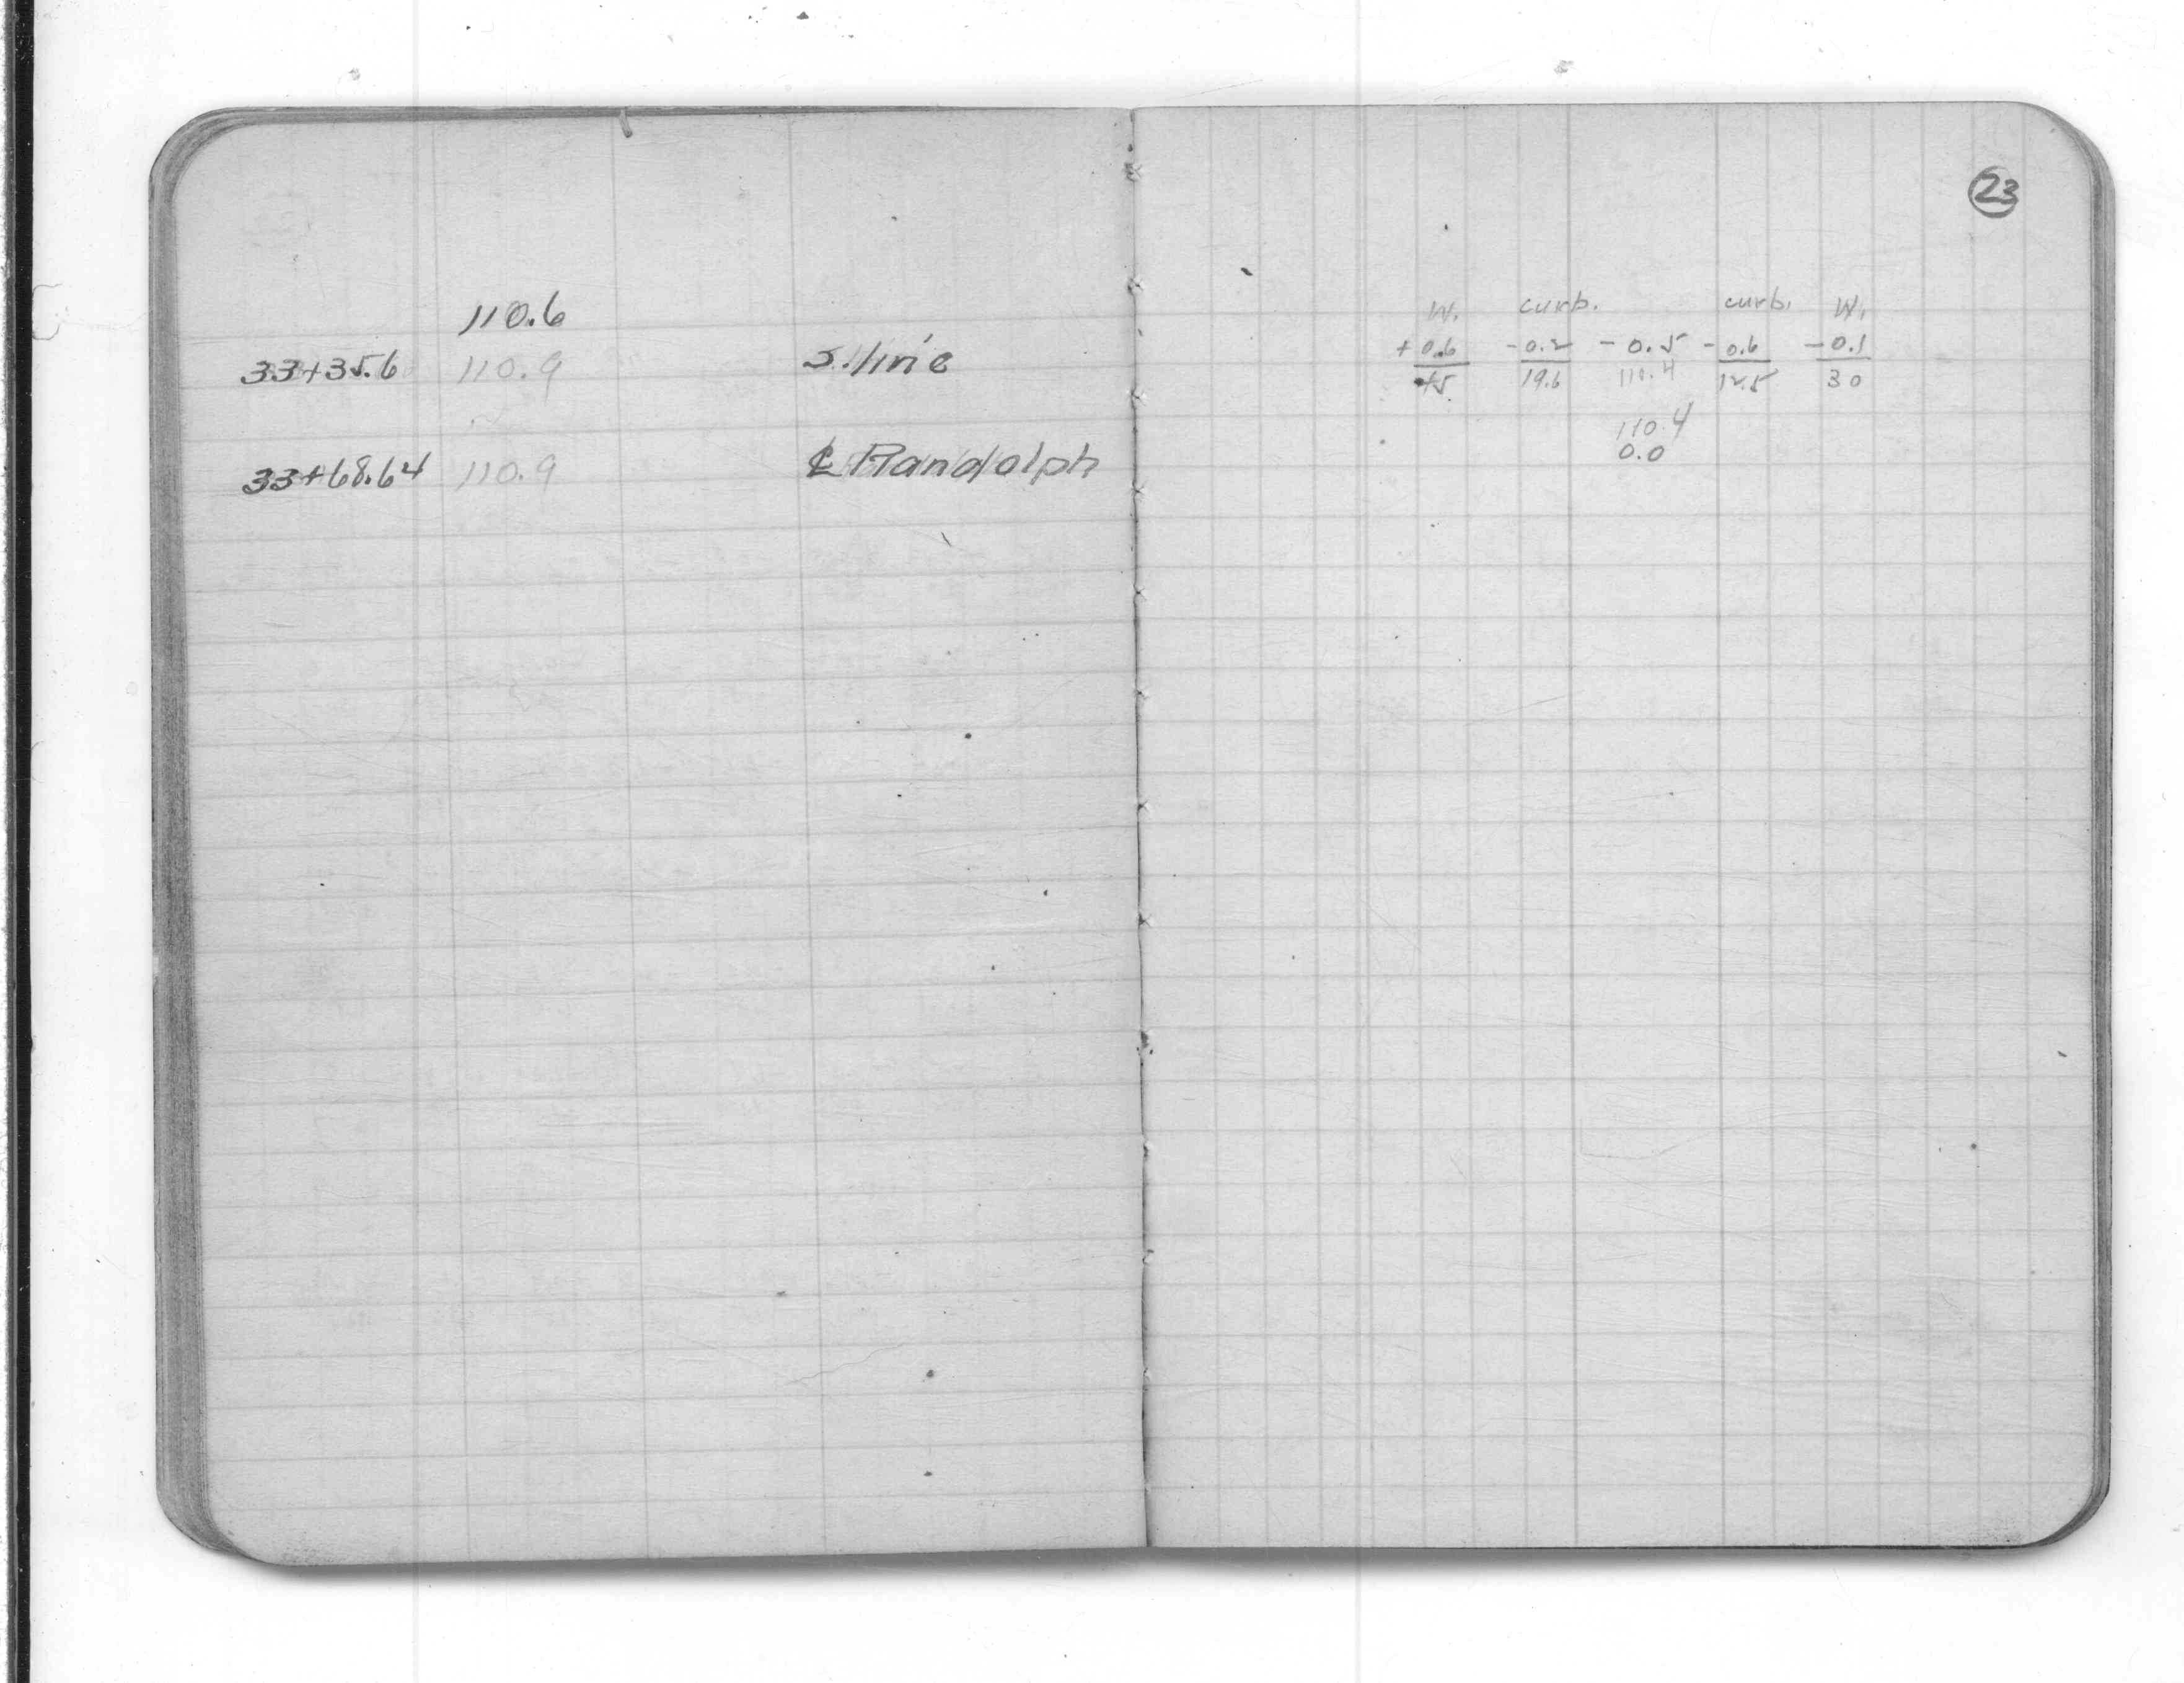 110.6
33+35.6 110.9 S. line
33+68.64 110.9 ℄ Randolph
23
W. curb. curb. W.
+0.6 -0.2 -0.5 -0.6 -0.1
19.6 110.4 12.5 30
110.4
0.0